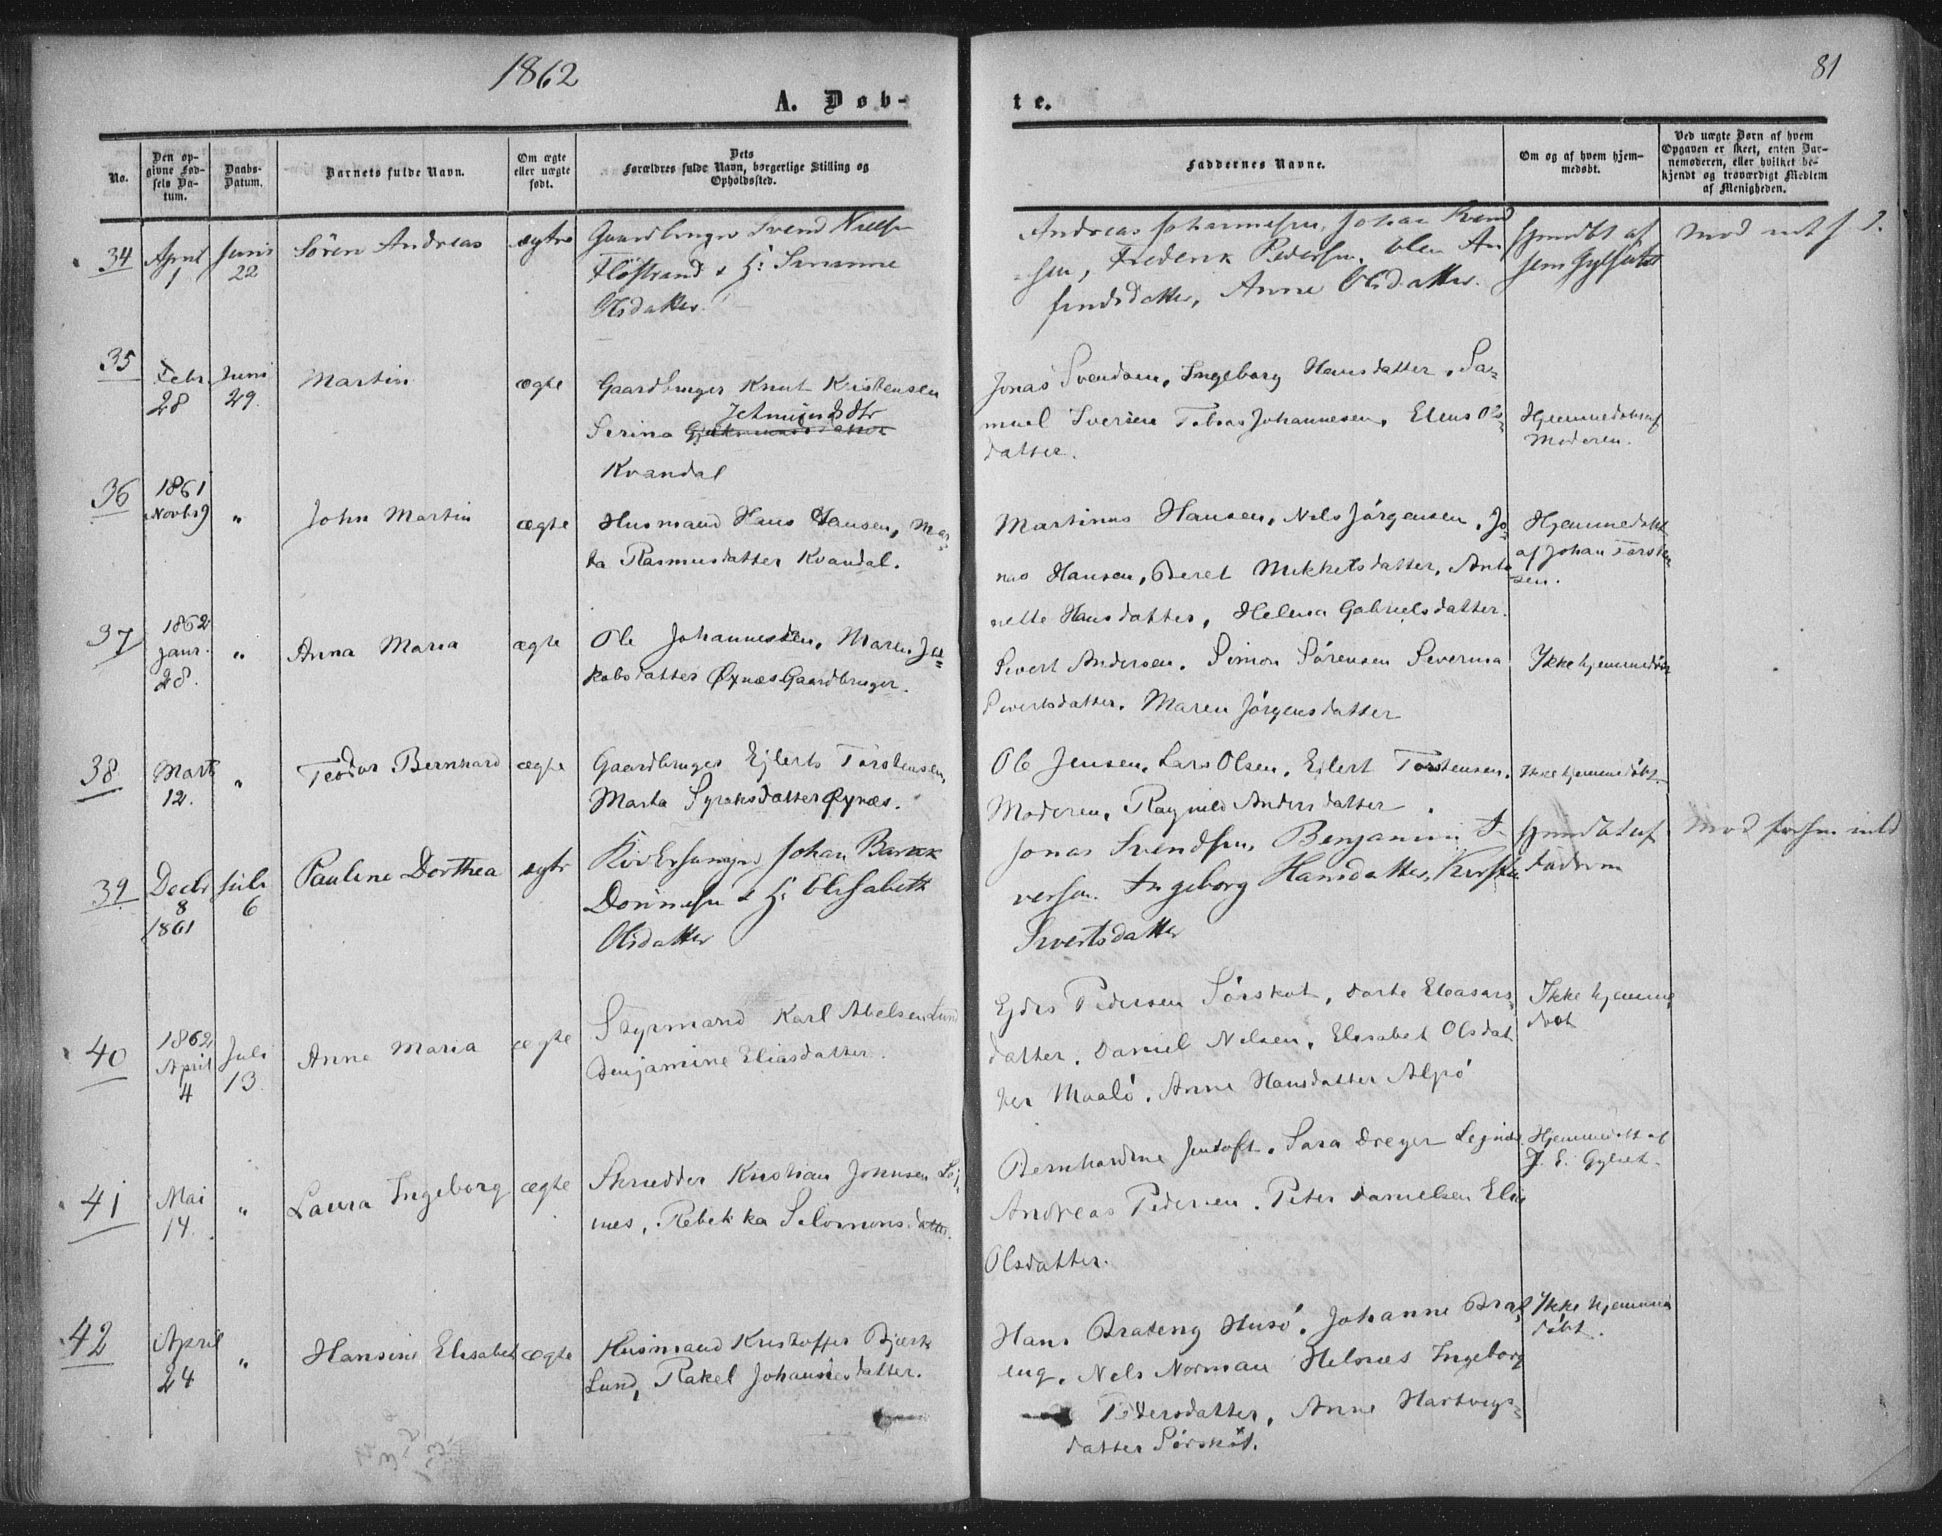 1862
81
A. Døb-
te.
No.
Den op-
givne Fød-
sels Da-
tum.
Daabs-
Datum.
Barnets fulde Navn.
Om ægte
eller uægte
født.
Dets
Forældres fulde Navn, borgerlige Stilling og
Opholdssted.
Faddernes Navne.
Om og af hvem hjem-
medøbt.
Ved uægte Børn af hvem
Opgaven er skeet, enten Bar-
nemoderen, eller hvilket be-
kjendt og troværdigt Medlem
af Menigheden.
34
April
1
Juni
22
Sören Andreas
ægte
Gaardbruger Svend Nielsen
Flöstrand & H:
Olsdatter
Andreas Johannesen, Johan Svend
sen, Frederik Pedersen, Ellen An
findsdatter, Anne Olsdatter.
hjmdbt af
Jens Gylseth
35
Febr.
28
Juni
29.
Martin
ægte
Gaardbruger Knut Kristensen
Jetmundsdtr
Serina
Kvandal
Jonas Svendsen, Ingeborg Hansdatter, Sa-
muel Iversen Tobias Johannesen, Elens Ols-
datter.
Hjemmedøbt af
Moderen.
36
1861
Novbr 9
"
John Martin
ægte
Husmand Hans Hansen, Mar-
ta Rasmusdatter Kvandal.
Martinus Hansen, Nels Jörgensen, Jo-
nas Hansen, Beret Mikkelsdatter, Anto
nette Hansdatter, Helena Gabrielsdatter.
Hjemmedøbt
af Johan Torsten
sen.
37
1862
Janr.
28.
"
Anna Maria
ægte
Ole Johannessen, Maren Ja-
kobsdatter Øxnæs Gaardbruger.
Sivert Andersen, Simon Sörensen Severina
Sivertsdatter, Maren Jörgensdatter
Ikke hjemmedøbt
38
Mart
12.
"
Teodor Bernhard
ægte
Gaardbruger Ejlert Torstensen,
Marta Syraksdatter Øxnæs.
Ole Jensen, Lars Olsen, Ejlert Torstensen,
Moderen, Ragnild Andersdatter
Ikke hjemmedøbt
39
Decbr
8
1861
Juli
6
Pauline Dorthea
ægte
Johan Barak
Dönnesen & H: Elisabeth
Olsdatter
Jonas Svendsen, Benjamin I-
versen. Ingeborg Hansdatter, Kirsten
Sivertsdatter
hjmdbt af
Faderen
40
1862
April
4
Juli
13.
Anne Maria
ægte
Styrmand Karl Abelsen Lund
Benjamine Eliasdatter.
Pedersen Sörskot, Dorte Eleasars-
datter, Daniel Nelsen, Elisabet Olsdat
ter Maalö, Anne Hansdatter Alpö
Ikke hjemme
døbt
41
Mai
14.
"
Laura Ingeborg
ægte
Skrædder Kristian Johnsen
Rebekka Salomonsdatter.
Bernhardine Jentoft, Sara Dreyer
Andreas Pedersen, Peter Danielsen
Olsdatter.
Hjemmedøbt af
J. E. Gylset.
42
April
24
"
Hansine Elisabet
ægte
Husmand Kristoffer Bjerk
Lund, Rakel Johannesdatter.
Hans Brateng Husö, Johanne Brat
eng, Nels Norman Helnæs Ingeborg
Pedersdatter, Anne Hartvigs-
datter Sörskot.
Ikke hjemme
døbt.